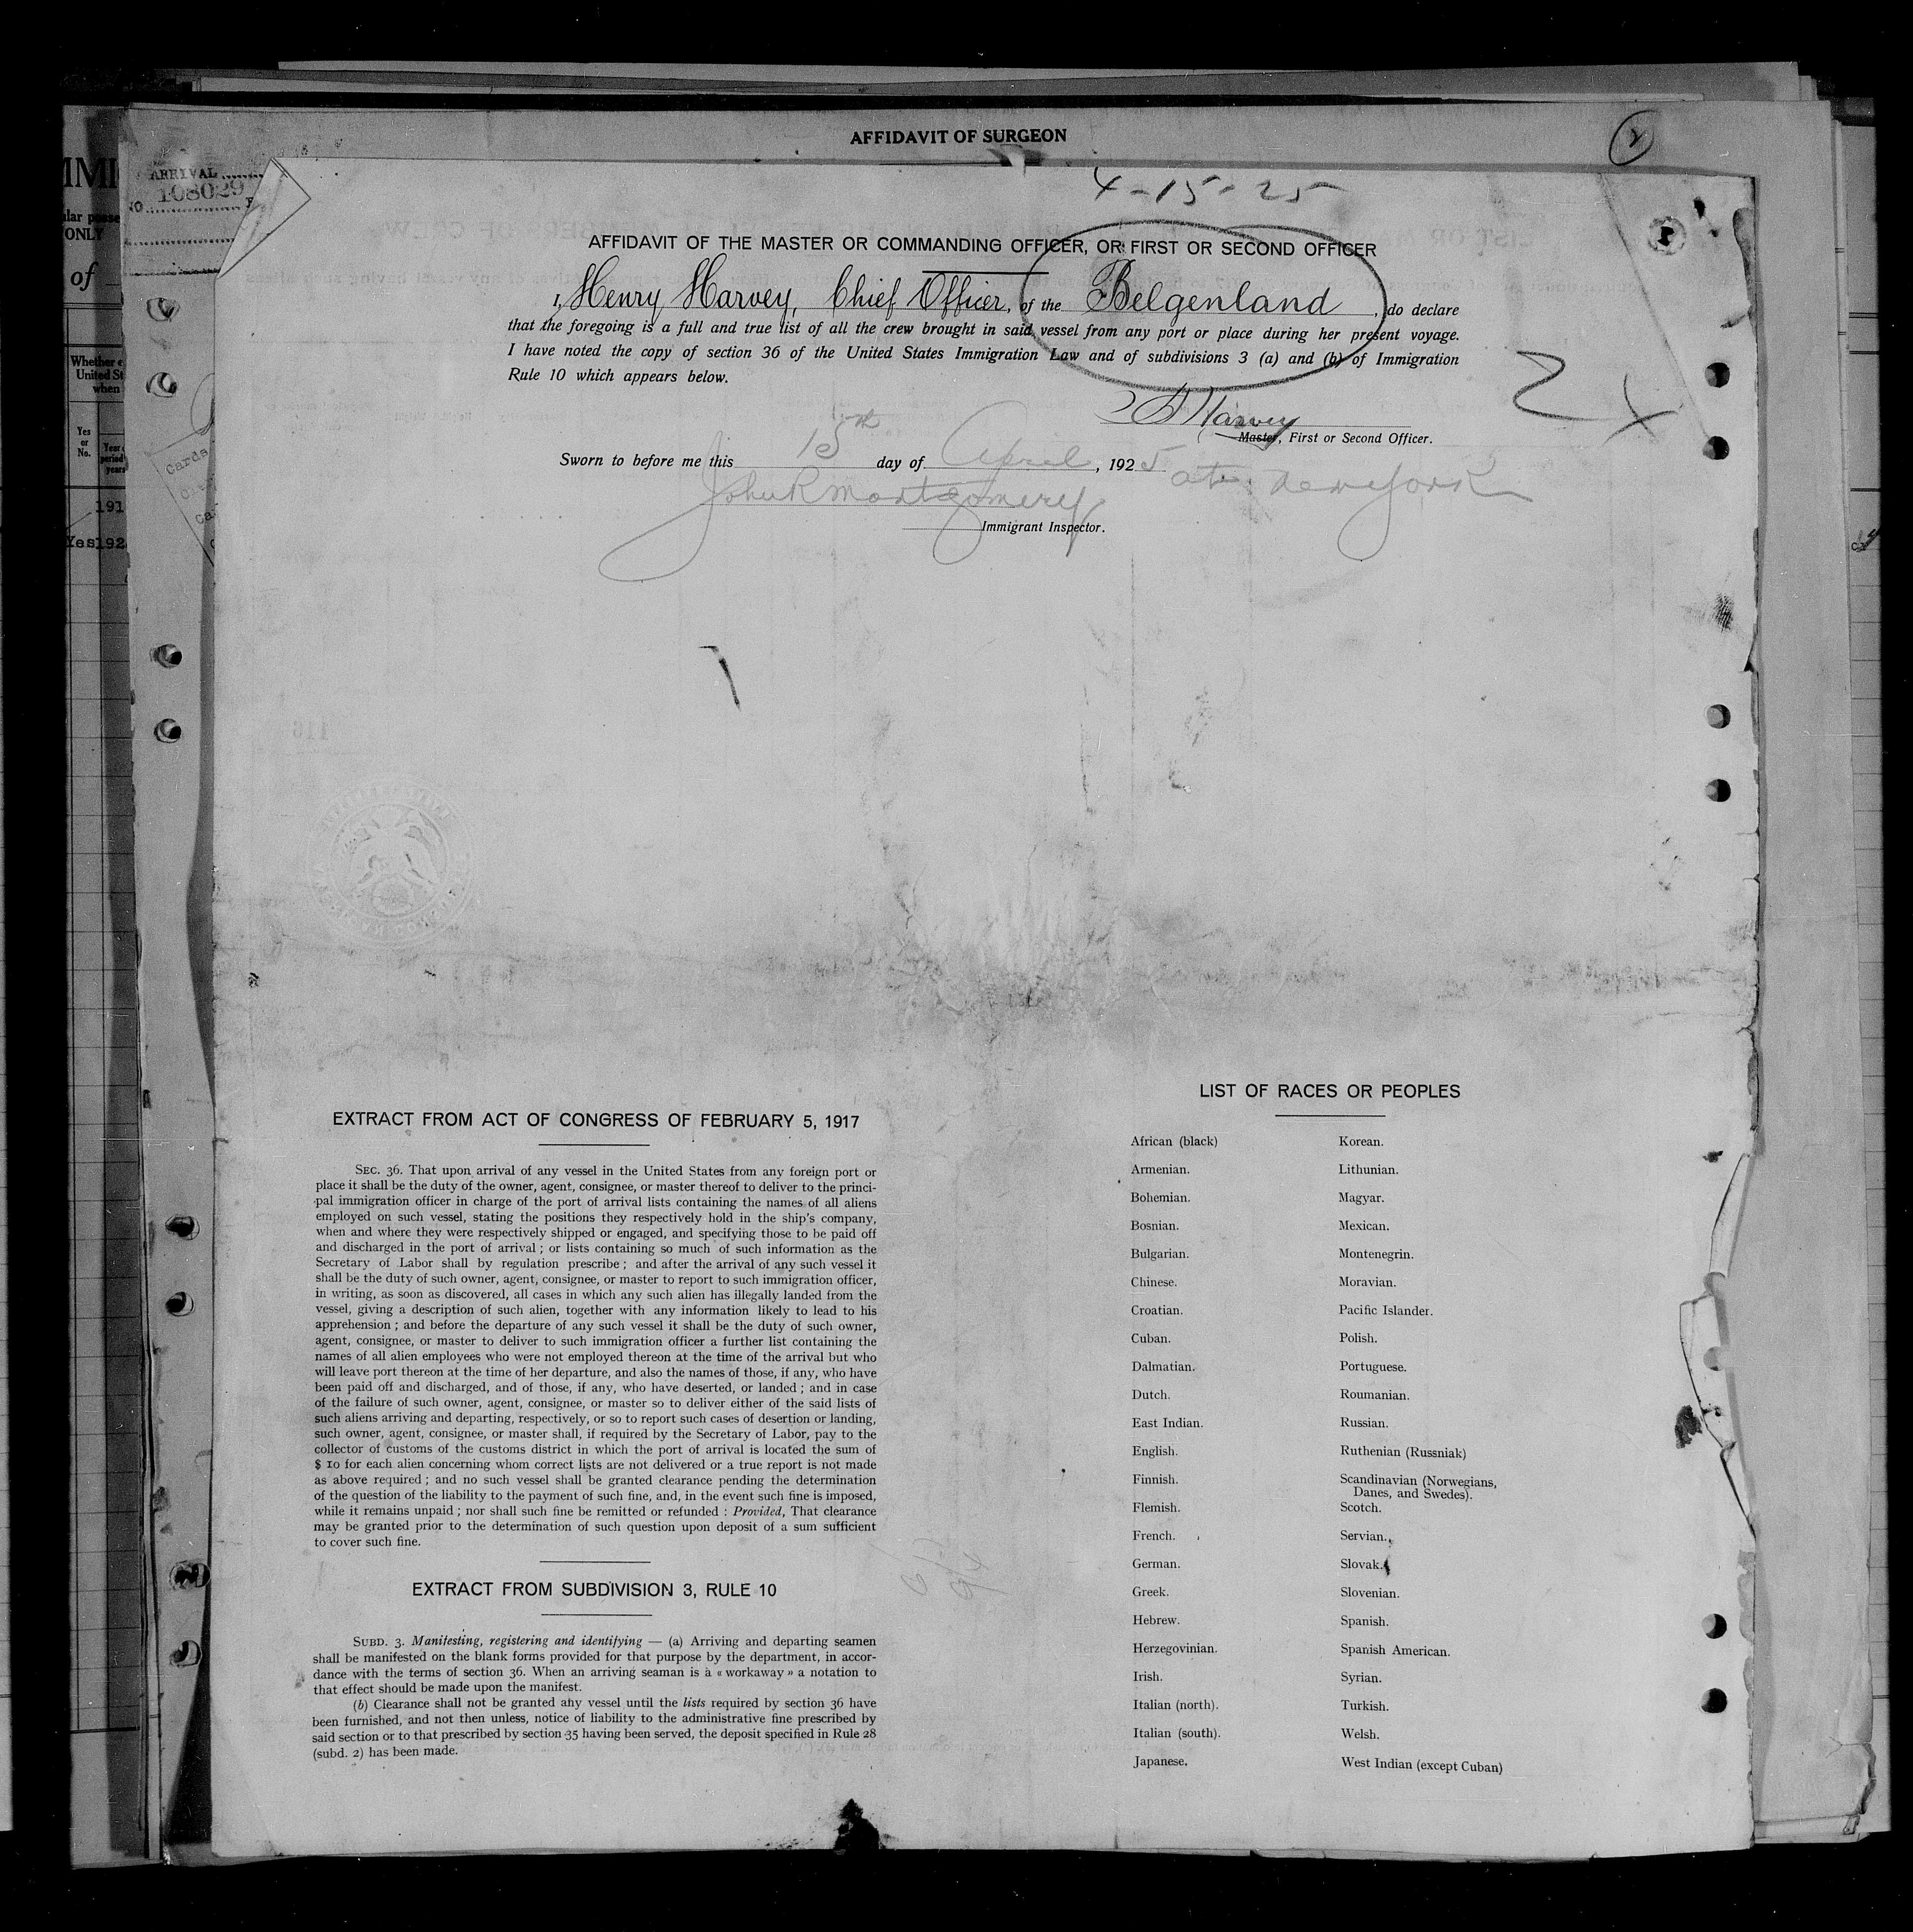 AFFIDAVIT OF SURGEON
2
IMMI
ular posse
ONLY
of
ARRIVAL
NO. 108029
Whether
United St
when
Yes
or
No.
Year
period
years
191
Yes 192
Cards
4-15-25
AFFIDAVIT OF THE MASTER OR COMMANDING OFFICER, OR FIRST OR SECOND OFFICER
I, Henry Harvey, Chief Officer, of the Belgenland, do declare
that the foregoing is a full and true list of all the crew brought in said vessel from any port or place during her present voyage.
I have noted the copy of section 36 of the United States Immigration Law and of subdivisions 3 (a) and (b) of Immigration
Rule 10 which appears below.
H Harvey
Master, First or Second Officer.
2 X
Sworn to before me this 15th day of April, 1925 at New York
John R Montgomery
Immigrant Inspector.
116
EXTRACT FROM ACT OF CONGRESS OF FEBRUARY 5, 1917
SEC. 36. That upon arrival of any vessel in the United States from any foreign port or
place it shall be the duty of the owner, agent, consignee, or master thereof to deliver to the princi-
pal immigration officer in charge of the port of arrival lists containing the names of all aliens
employed on such vessel, stating the positions they respectively hold in the ship's company,
when and where they were respectively shipped or engaged, and specifying those to be paid off
and discharged in the port of arrival ; or lists containing so much of such information as the
Secretary of Labor shall by regulation prescribe ; and after the arrival of any such vessel it
shall be the duty of such owner, agent, consignee, or master to report to such immigration officer,
in writing, as soon as discovered, all cases in which any such alien has illegally landed from the
vessel, giving a description of such alien, together with any information likely to lead to his
apprehension ; and before the departure of any such vessel it shall be the duty of such owner,
agent, consignee, or master to deliver to such immigration officer a further list containing the
names of all alien employees who were not employed thereon at the time of the arrival but who
will leave port thereon at the time of her departure, and also the names of those, if any, who have
been paid off and discharged, and of those, if any, who have deserted, or landed ; and in case
of the failure of such owner, agent, consignee, or master so to deliver either of the said lists of
such aliens arriving and departing, respectively, or so to report such cases of desertion or landing,
such owner, agent, consignee, or master shall, if required by the Secretary of Labor, pay to the
collector of customs of the customs district in which the port of arrival is located the sum of
$ 10 for each alien concerning whom correct lists are not delivered or a true report is not made
as above required ; and no such vessel shall be granted clearance pending the determination
of the question of the liability to the payment of such fine, and, in the event such fine is imposed,
while it remains unpaid ; nor shall such fine be remitted or refunded : Provided, That clearance
may be granted prior to the determination of such question upon deposit of a sum sufficient
to cover such fine.
EXTRACT FROM SUBDIVISION 3, RULE 10
SUBD. 3. Manifesting, registering and identifying — (a) Arriving and departing seamen
shall be manifested on the blank forms provided for that purpose by the department, in accor-
dance with the terms of section 36. When an arriving seaman is à « workaway » a notation to
that effect should be made upon the manifest.
(b) Clearance shall not be granted any vessel until the lists required by section 36 have
been furnished, and not then unless, notice of liability to the administrative fine prescribed by
said section or to that prescribed by section 35 having been served, the deposit specified in Rule 28
(subd. 2) has been made.
LIST OF RACES OR PEOPLES
African (black)
Armenian.
Bohemian.
Bosnian.
Bulgarian.
Chinese.
Croatian.
Cuban.
Dalmatian.
Dutch.
East Indian.
English.
Finnish.
Flemish.
French.
German.
Greek.
Hebrew.
Herzegovinian.
Irish.
Italian (north).
Italian (south).
Japanese.
Korean.
Lithunian.
Magyar.
Mexican.
Montenegrin.
Moravian.
Pacific Islander.
Polish.
Portuguese.
Roumanian.
Russian.
Ruthenian (Russniak)
Scandinavian (Norwegians,
Danes, and Swedes).
Scotch.
Servian.
Slovak.
Slovenian.
Spanish.
Spanish American.
Syrian.
Turkish.
Welsh.
West Indian (except Cuban)